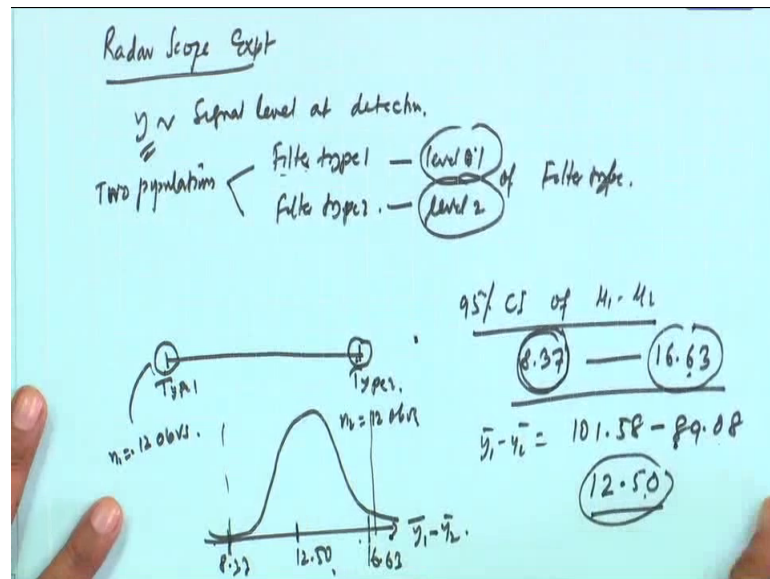 Radar Scope Expt
y ~ Signal level at detectn.
Two populations
Filter type1 — level 1 of Filter type.
Filter type2. — level 2
95% CI of μ1-μ2
8.37 — 16.63
ȳ1-ȳ2 = 101.58 - 89.08
12.50
Type1
Type2.
n1 = 12 obvs.
n2 = 12 obvs
8.37 12.50 16.63 ȳ1-ȳ2.